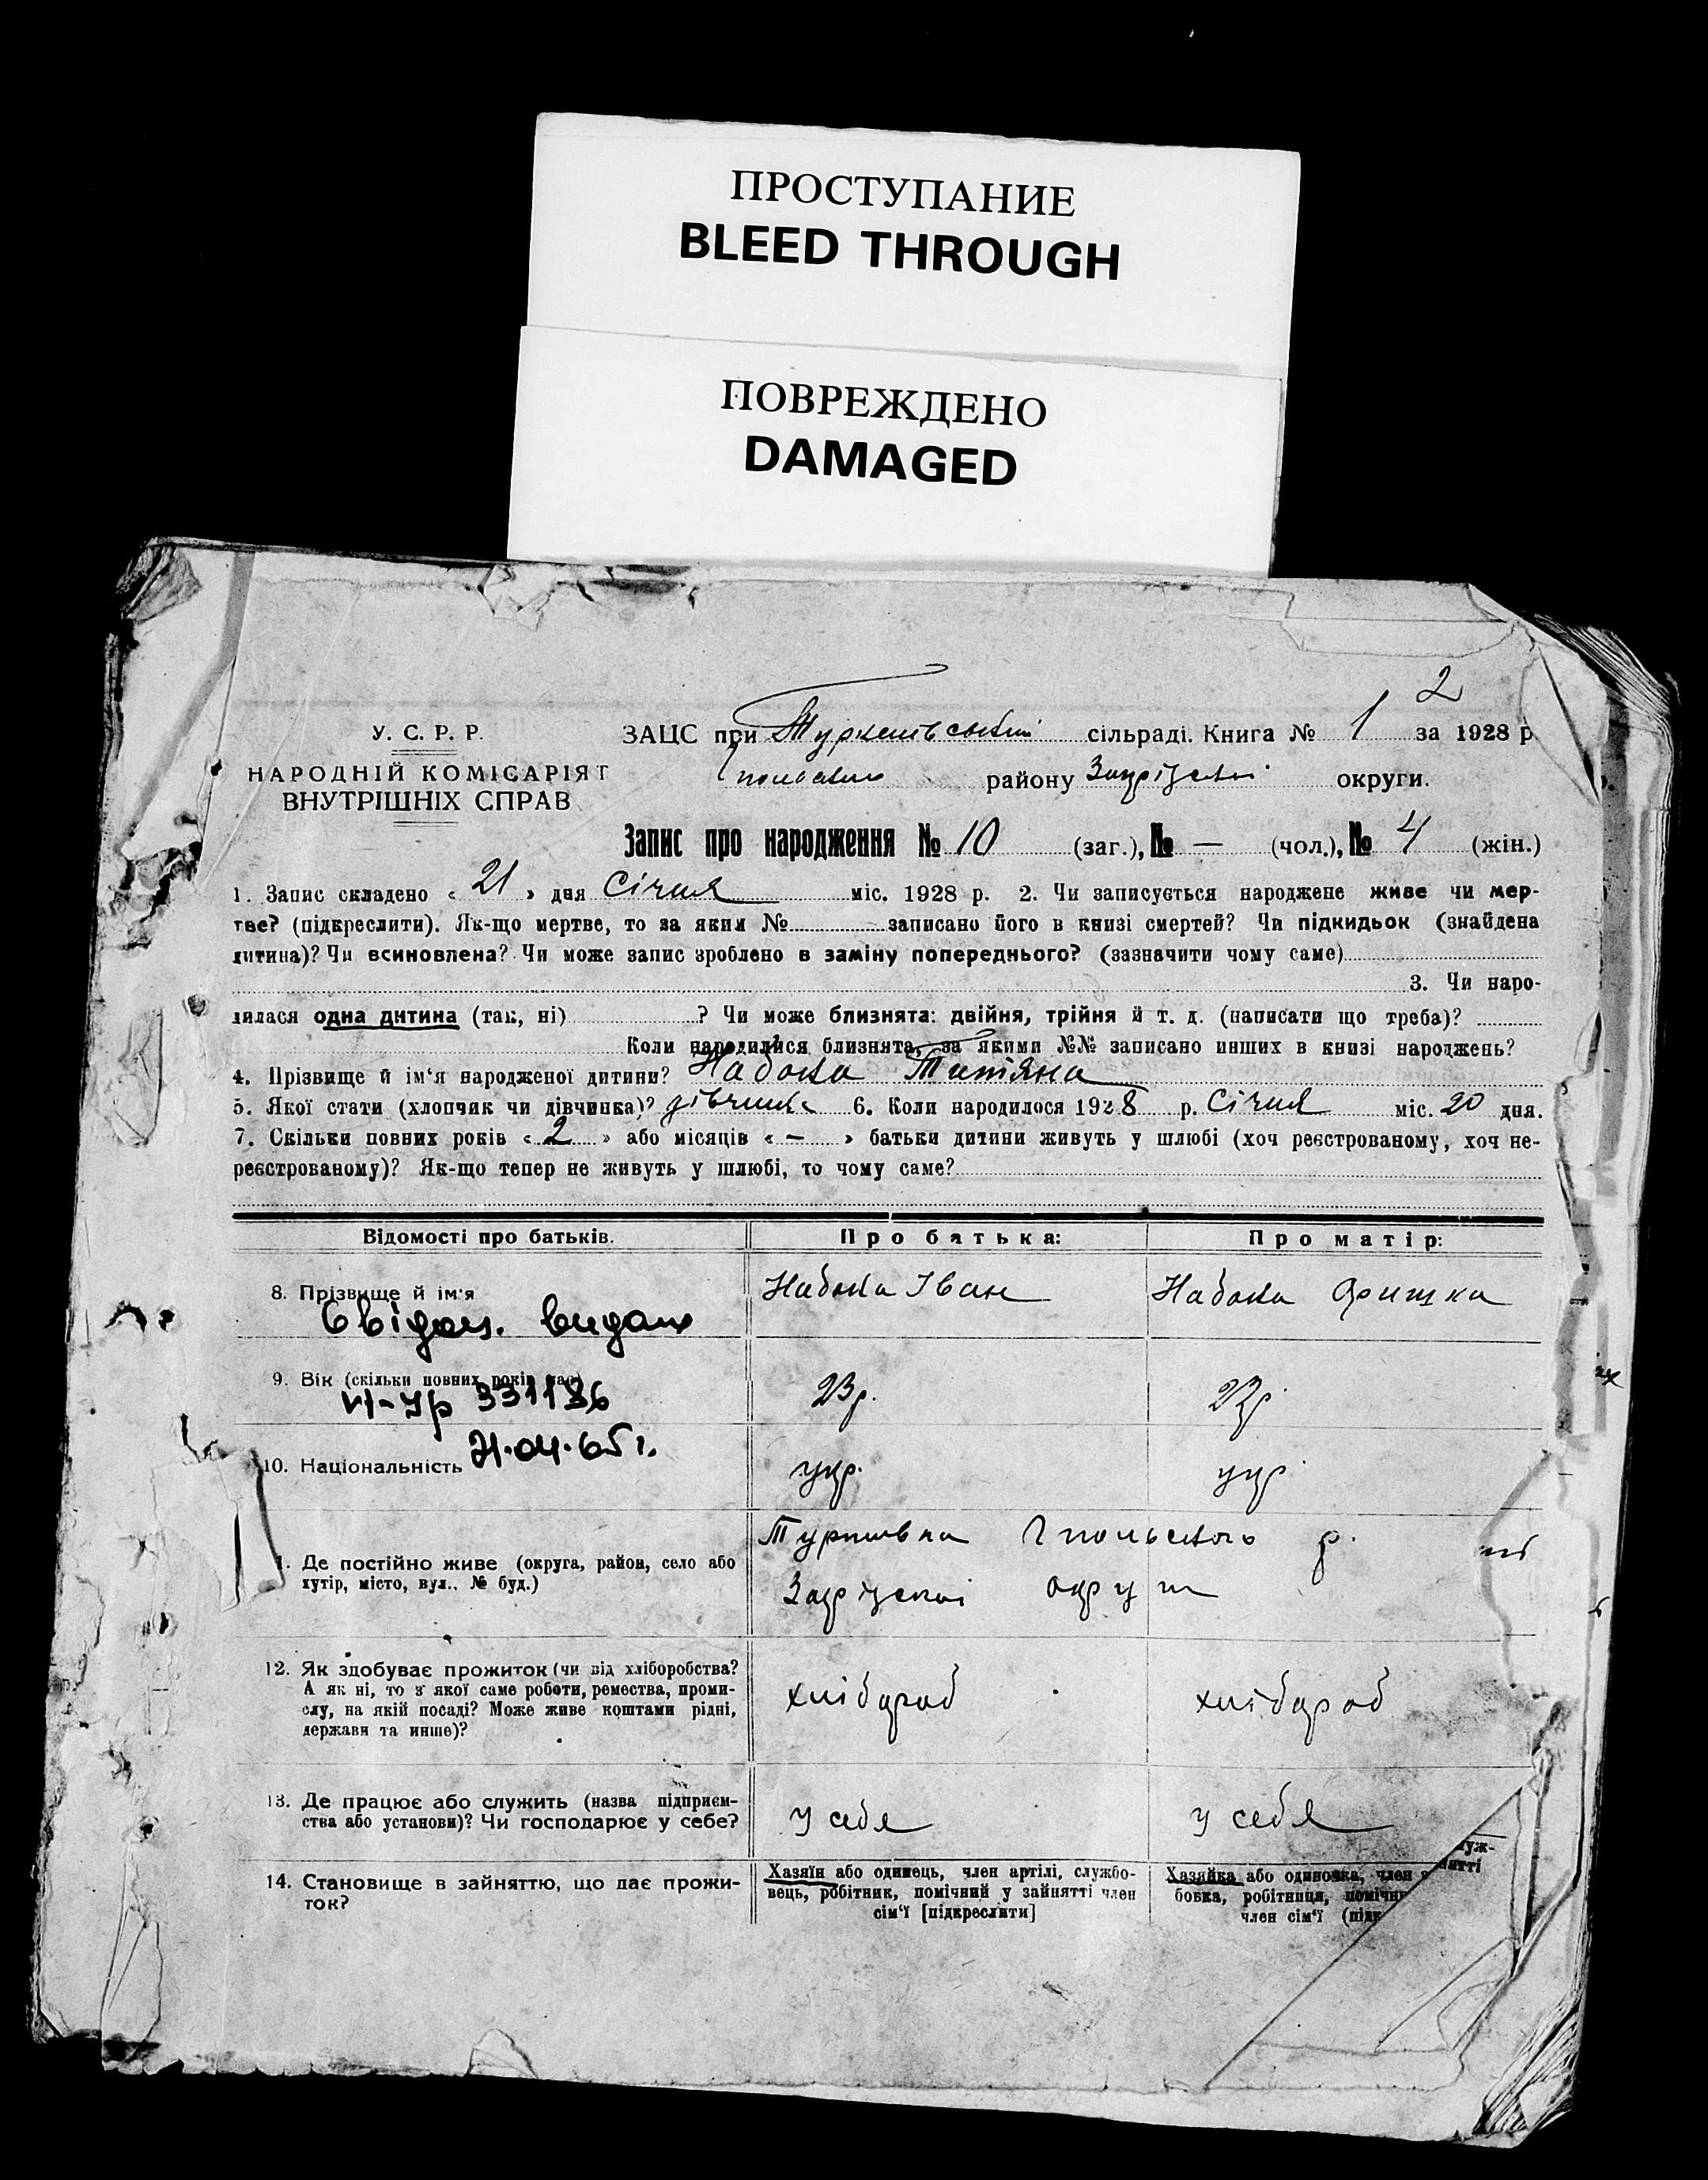 2
ПРОСТУПАНИЕ
BLEED THROUGH
ПОВРЕЖДЕНО
DAMAGED
У. С. Р. Р.
НАРОДНІЙ КОМІСАРІЯТ
ВНУТРІШНІХ СПРАВ
ЗАЦС при сільраді. Книга № 1 за 1928 р
району округи.
Запис про народження № 10 (заг.), № — (чол.), № 4 (жін.)
1. Запис складено « 21 » дня Січня міс. 1928 р. 2. Чи записується народжене живе чи мер-
тве? (підкреслити). Як-що мертве, то за яким № записано його в книзі смертей? Чи підкидьок (знайдена
дитина)? Чи всиновлена? Чи може запис зроблено в заміну попереднього? (зазначити чому саме)
3. Чи наро-
дилася одна дитина (так, ні) ? Чи може близнята: двійня, трійня й т. д. (написати що треба)?
Коли народилися близнята, за якими №№ записано инших в книзі народжень?
4. Прізвище й ім‘я народженої дитини? Набока Титяна
5. Якої стати (хлопчик чи дівчинка)? дівчинка 6. Коли народилося 1928 р. Січня міс. 20 дня.
7. Скільки повних років « 2 » або місяців « – » батьки дитини живуть у шлюбі (хоч реєстрованому, хоч не-
реєстрованому)? Як-що тепер не живуть у шлюбі, то чому саме?
Відомості про батьків. Про батька: Про матір:
8. Прізвище й ім‘я Набока Іван Набока
Свідоц. видано
9. Вік (скільки повних років має) 23р. 23р
331186
21.04.65 г.
10. Національність укр. укр.
11. Де постійно живе (округа, район, село або
хутір, місто, вул., № буд.)
р.
округи
12. Як здобуває прожиток (чи від хліборобства?
А як ні, то з якої саме роботи, ремества, проми-
слу, на якій посаді? Може живе коштами рідні,
держави та инше)?
хлібороб хлібороб
13. Де працює або служить (назва підприєм-
ства або установи)? Чи господарює у себе?
у себя у себя
14. Становище в зайняттю, що дає прожи-
ток?
Хазяїн або одинець, член артілі, службо-
вець, робітник, помічний у зайнятті член
сім‘ї [підкреслити]
Хазяйка або одиночка, член
бовка, робітниця,
член сім‘ї